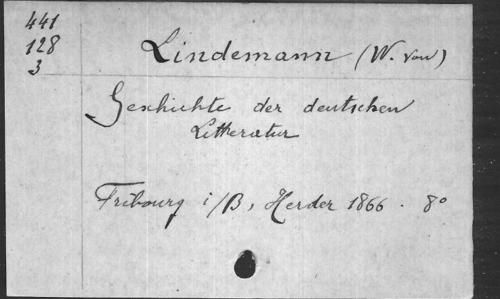 441
128
3
Lindemann (W. von)
Geschichte der deutschen
Litteratur
Fribourg i/B, Herder 1866. 8º